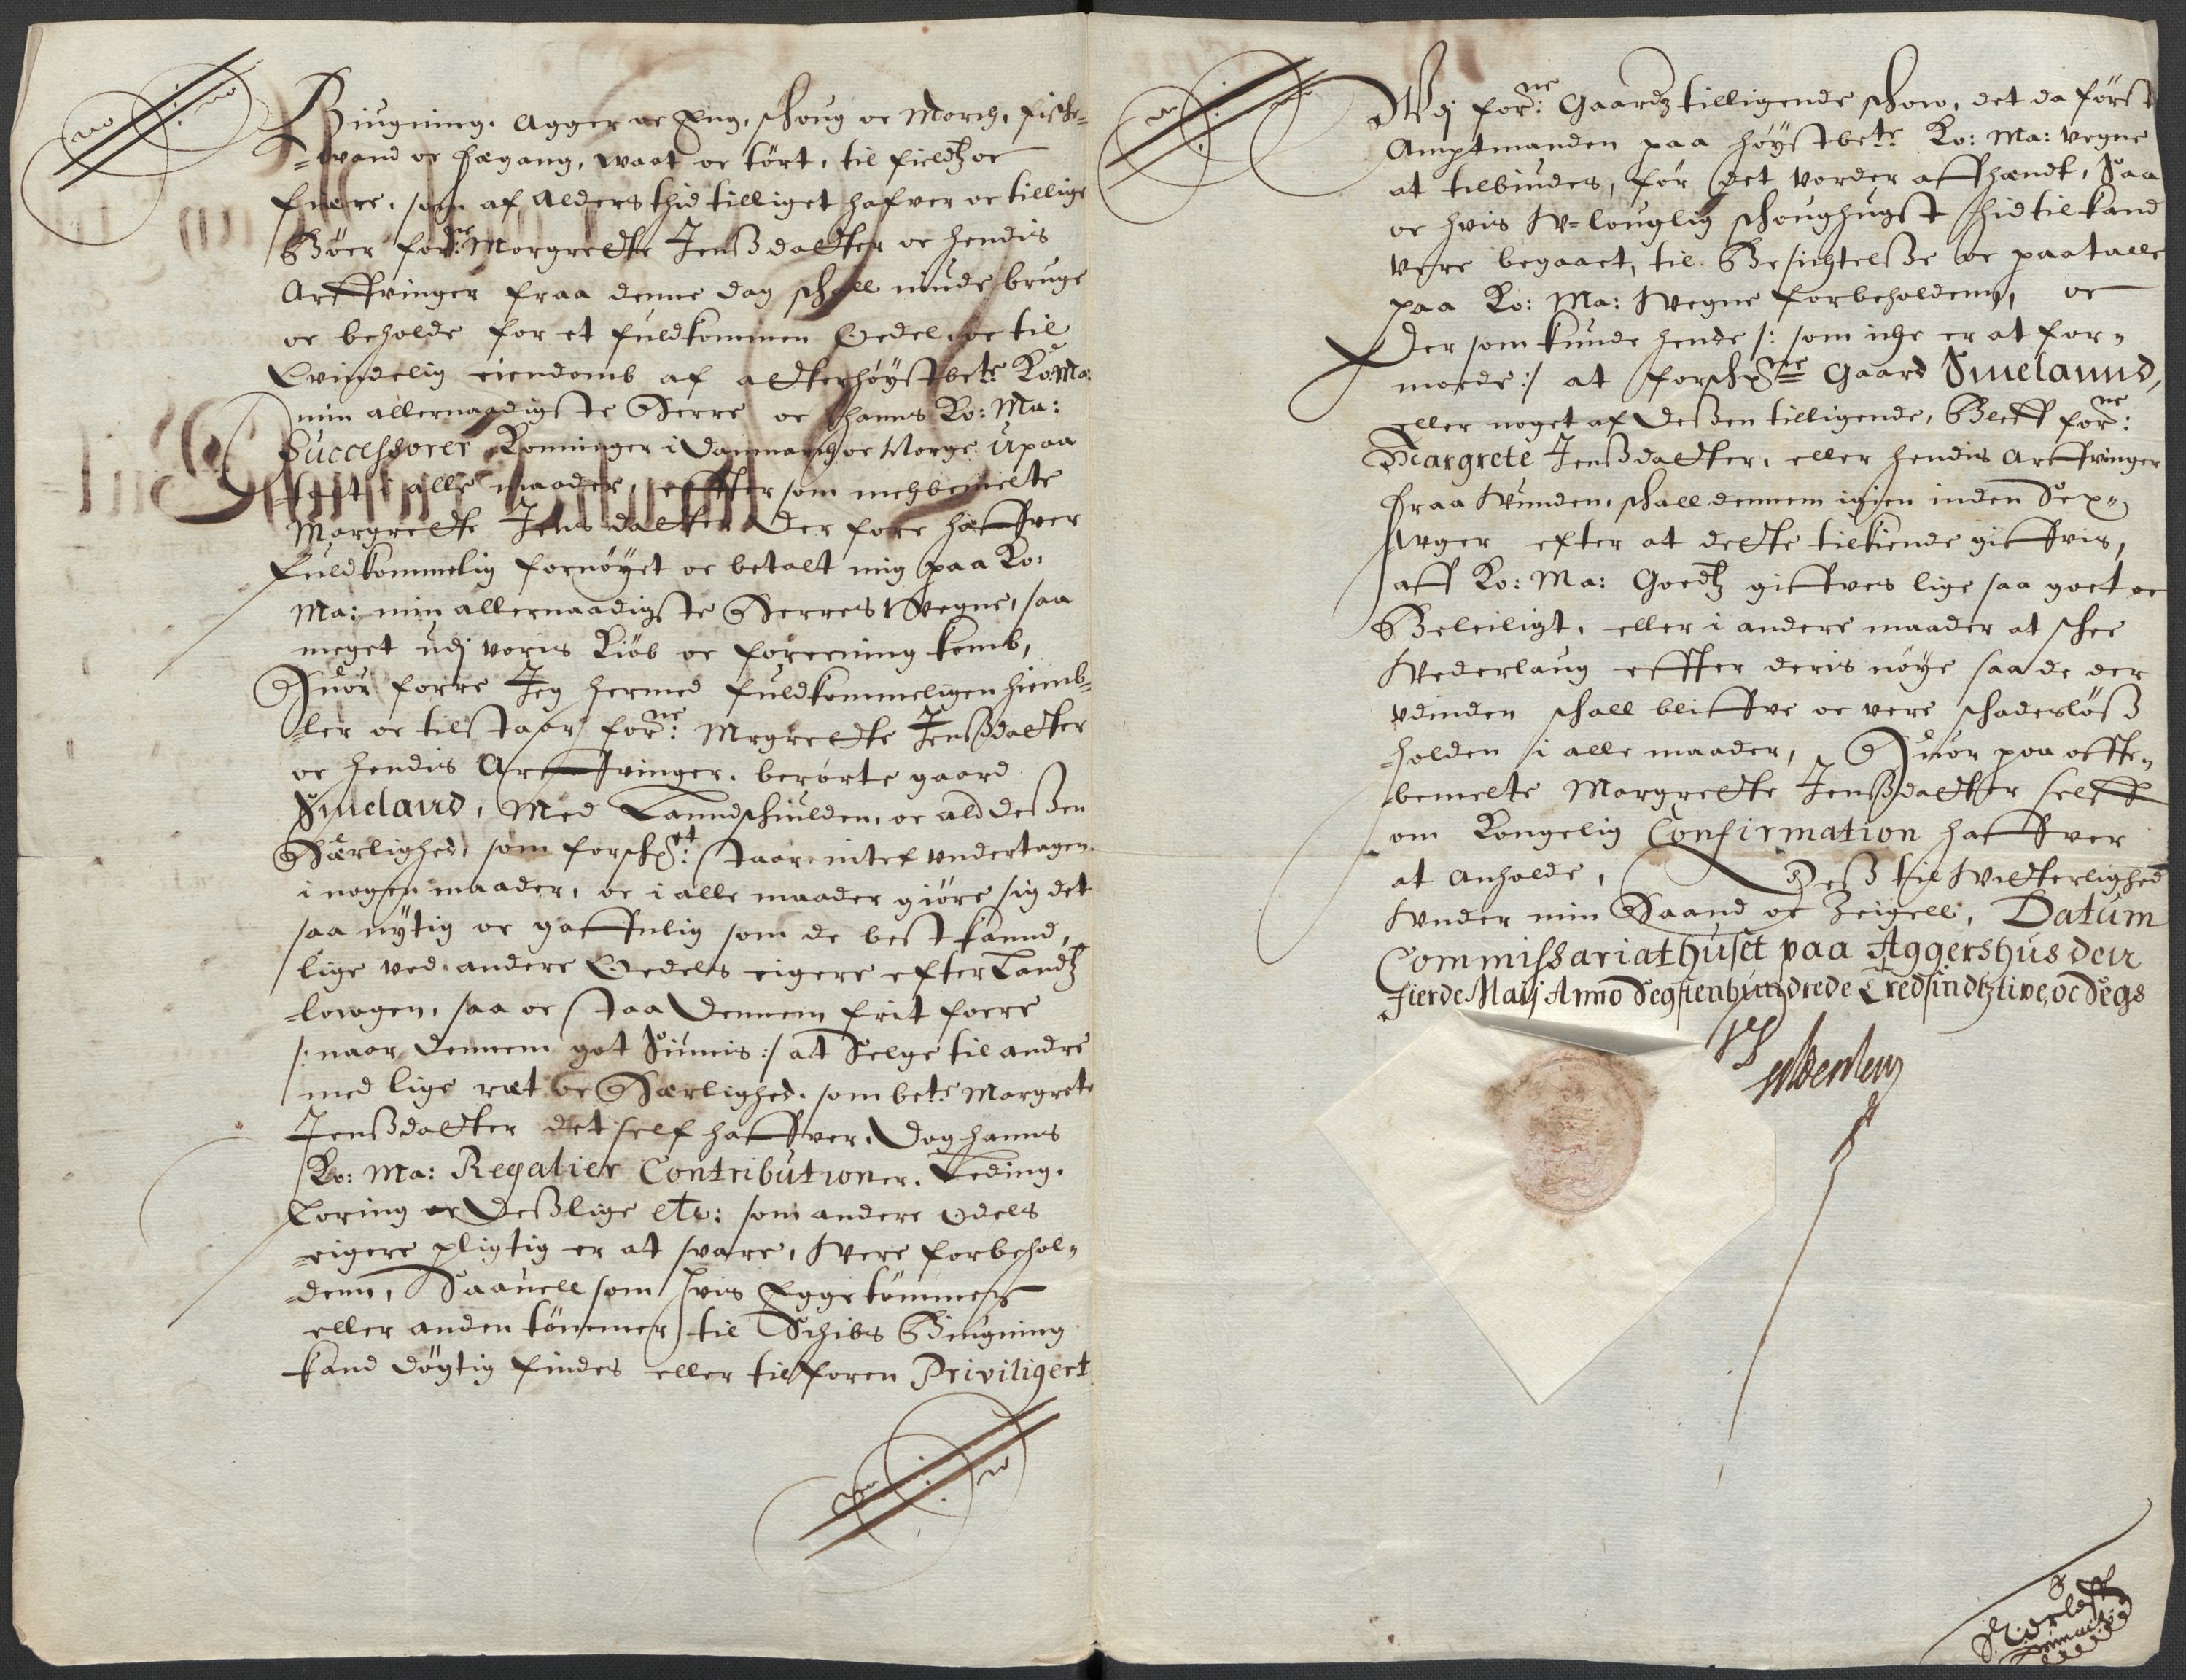 Biugning. Agger oc Eng, schoug oc March, fische-
=wand oc fægang, waat oc tört, til fieldtz oc
fiære, som af Alders thid tilliget hafver oc tillige
Bör, for:ne Margrette Jenßdatter oc hendis
Arffvinger fraa denne dag schall niude bruge
oc beholde for et fuldkommen Oedel, oc til
Evindelig eiendomb af atterhöystbete Ko: Ma:
min allernaadigste Herre oc hanns Ko: Ma:
Successorer Konninger i Danmarch oc Norge upaa
talt i alle maader, effter som mehrbemelte
Margrette Jens datter der fore haffver
fuldkommelig fornöyet oc betalt mig paa Ko:
Ma: min allernaadigste Herres Wegne, saa
meget udj voris Kiöb oc foreening komb,
Huor forre Jeg hermed fuldkommeligen hiemb-
=ler oc tilstaar for:ne Mrgrette Jenßdatter
oc hendis Arffvinger. berörte gaard
Smeland, Med Lanndschiulden, oc ald deßen
Herlighed, som forschr:et staar intet undertagen
i nogen maader, oc i alle maader giöre sig det
saa nyttig oc gaffnlig som de best kannd,
lige ved andere Oedels eigere efter Landtz
=lowgen, saa oc staa dennem frit foere
/: naar dennem got Siunis :/ at Selge til andre
med lige ræt oc Herlighed. som bete Margrete
Jenßdatter det self haffver. Dog hanns
Ko: Ma: Regalier Contributioner. Leding.
Foring oc deßlige etc: som andere Odels
=eigere pligtig er at svare, Were forbehol-
=denn, Saauell som hvis Eggetömmer
eller anden tömmer til Schibs Biugning
kand dögtig findes eller tilforen Priviligert
Udj for:ne Gaardtz tilligende schow, det da först
Amptmanden paa höystbete Ko: Ma: vegne
at tilbiudes, för det vorder affhændt, Saa
oc hvis W=louglig schoughugst hidtil kand
vere begaaet, til Besichtelße oc paatalle
paa Ko: Ma: Wegne forbeholdenn, oc
Der som kunde hende /: som iche er at for-
mode :/ at forschr:ne Gaard Smelannd,
eller noget af deßen tilligende, Bleff for:ne
Margrete Jenßdatter, eller hendis Arffvinger
fraa Wunden, schall dennem igien inden Sex
Uger efter at dette tilkiende giffvis,
aff Ko: Ma: Goedtz giffves lige saa goet oc
Beleiligt, eller i andere maader at schee
Wederlaug effter deris nöye saa de der
vdinden schall bliffve oc vere schadeslöß
=holden i alle maader, Huor paa offte-
bemelte Margrette Jenßdatter selff
om Kongelig Confirmation haffver
at anholde, Deß til Witterlighed
Under min Haand oc Zeigell, Datum
Commissariathuset paa Aggershus den
Fierde Maij Anno Segstenhundrede Tredsindtztive, oc Segs